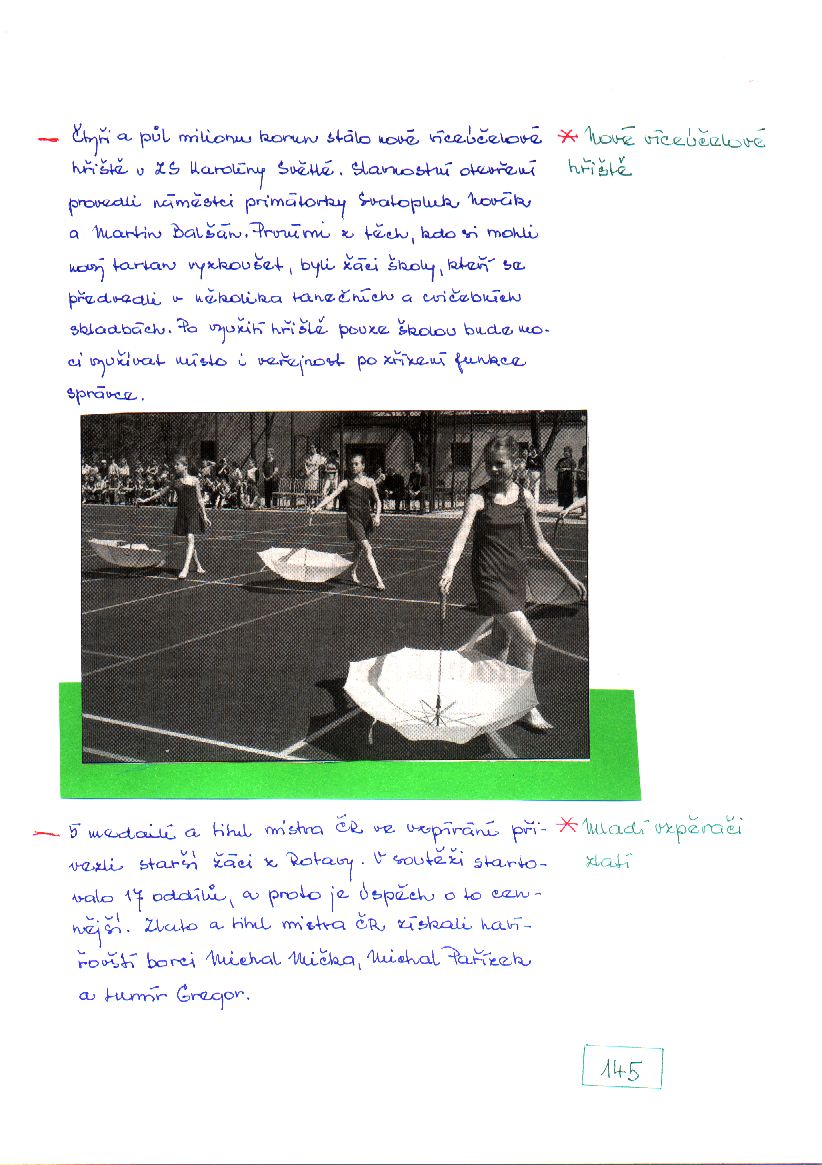 — Čtyři a půl milionu korun stálo nové víceúčelové
hřiště v ZŠ Karolíny Světlé. Slavnostní otevření
provedli náměstci primátorky Svatopluk Novák
a Martin Balšán. Prvními z těch, kdo si mohli
nový tartan vyzkoušet, byli žáci školy, kteří se
předvedli v několika tanečních a cvičebních
skladbách. Po využití hřiště pouze školou bude mo-
ci využívat místo i veřejnost po zřízení funkce
správce.
* Nové víceúčelové
hřiště
— 5 medailí a titul mistra ČR ve vzpírání při-
vezli starší žáci z Rotavy. V soutěži starto-
valo 17 oddílů, a proto je úspěch o to cen-
nější. Zlato a titul mistra ČR získali haví-
řovští borci Michal Mička, Michal Pařízek
a Lumír Gregor.
* Mladí vzpěrači
zlatí
145